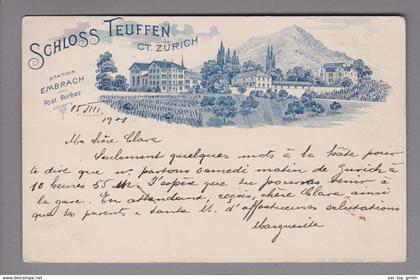 SCHLOSS TEUFFEN
CT. ZÜRICH
STATION
EMBRACH
Post Rorbas
15/III.
1901
Ma chère Clara
Seulement quelques mots à la hâte pour
te dire que n. partons samedi matin de Zurich à
10 heures 55 M. J'espère que tu pourras venir à
la gare. En attendant, reçois, chère Clara ainsi
que tes parents & tante M. d'affectueuses salutations
Marguerite
www.top-gmbh.ch